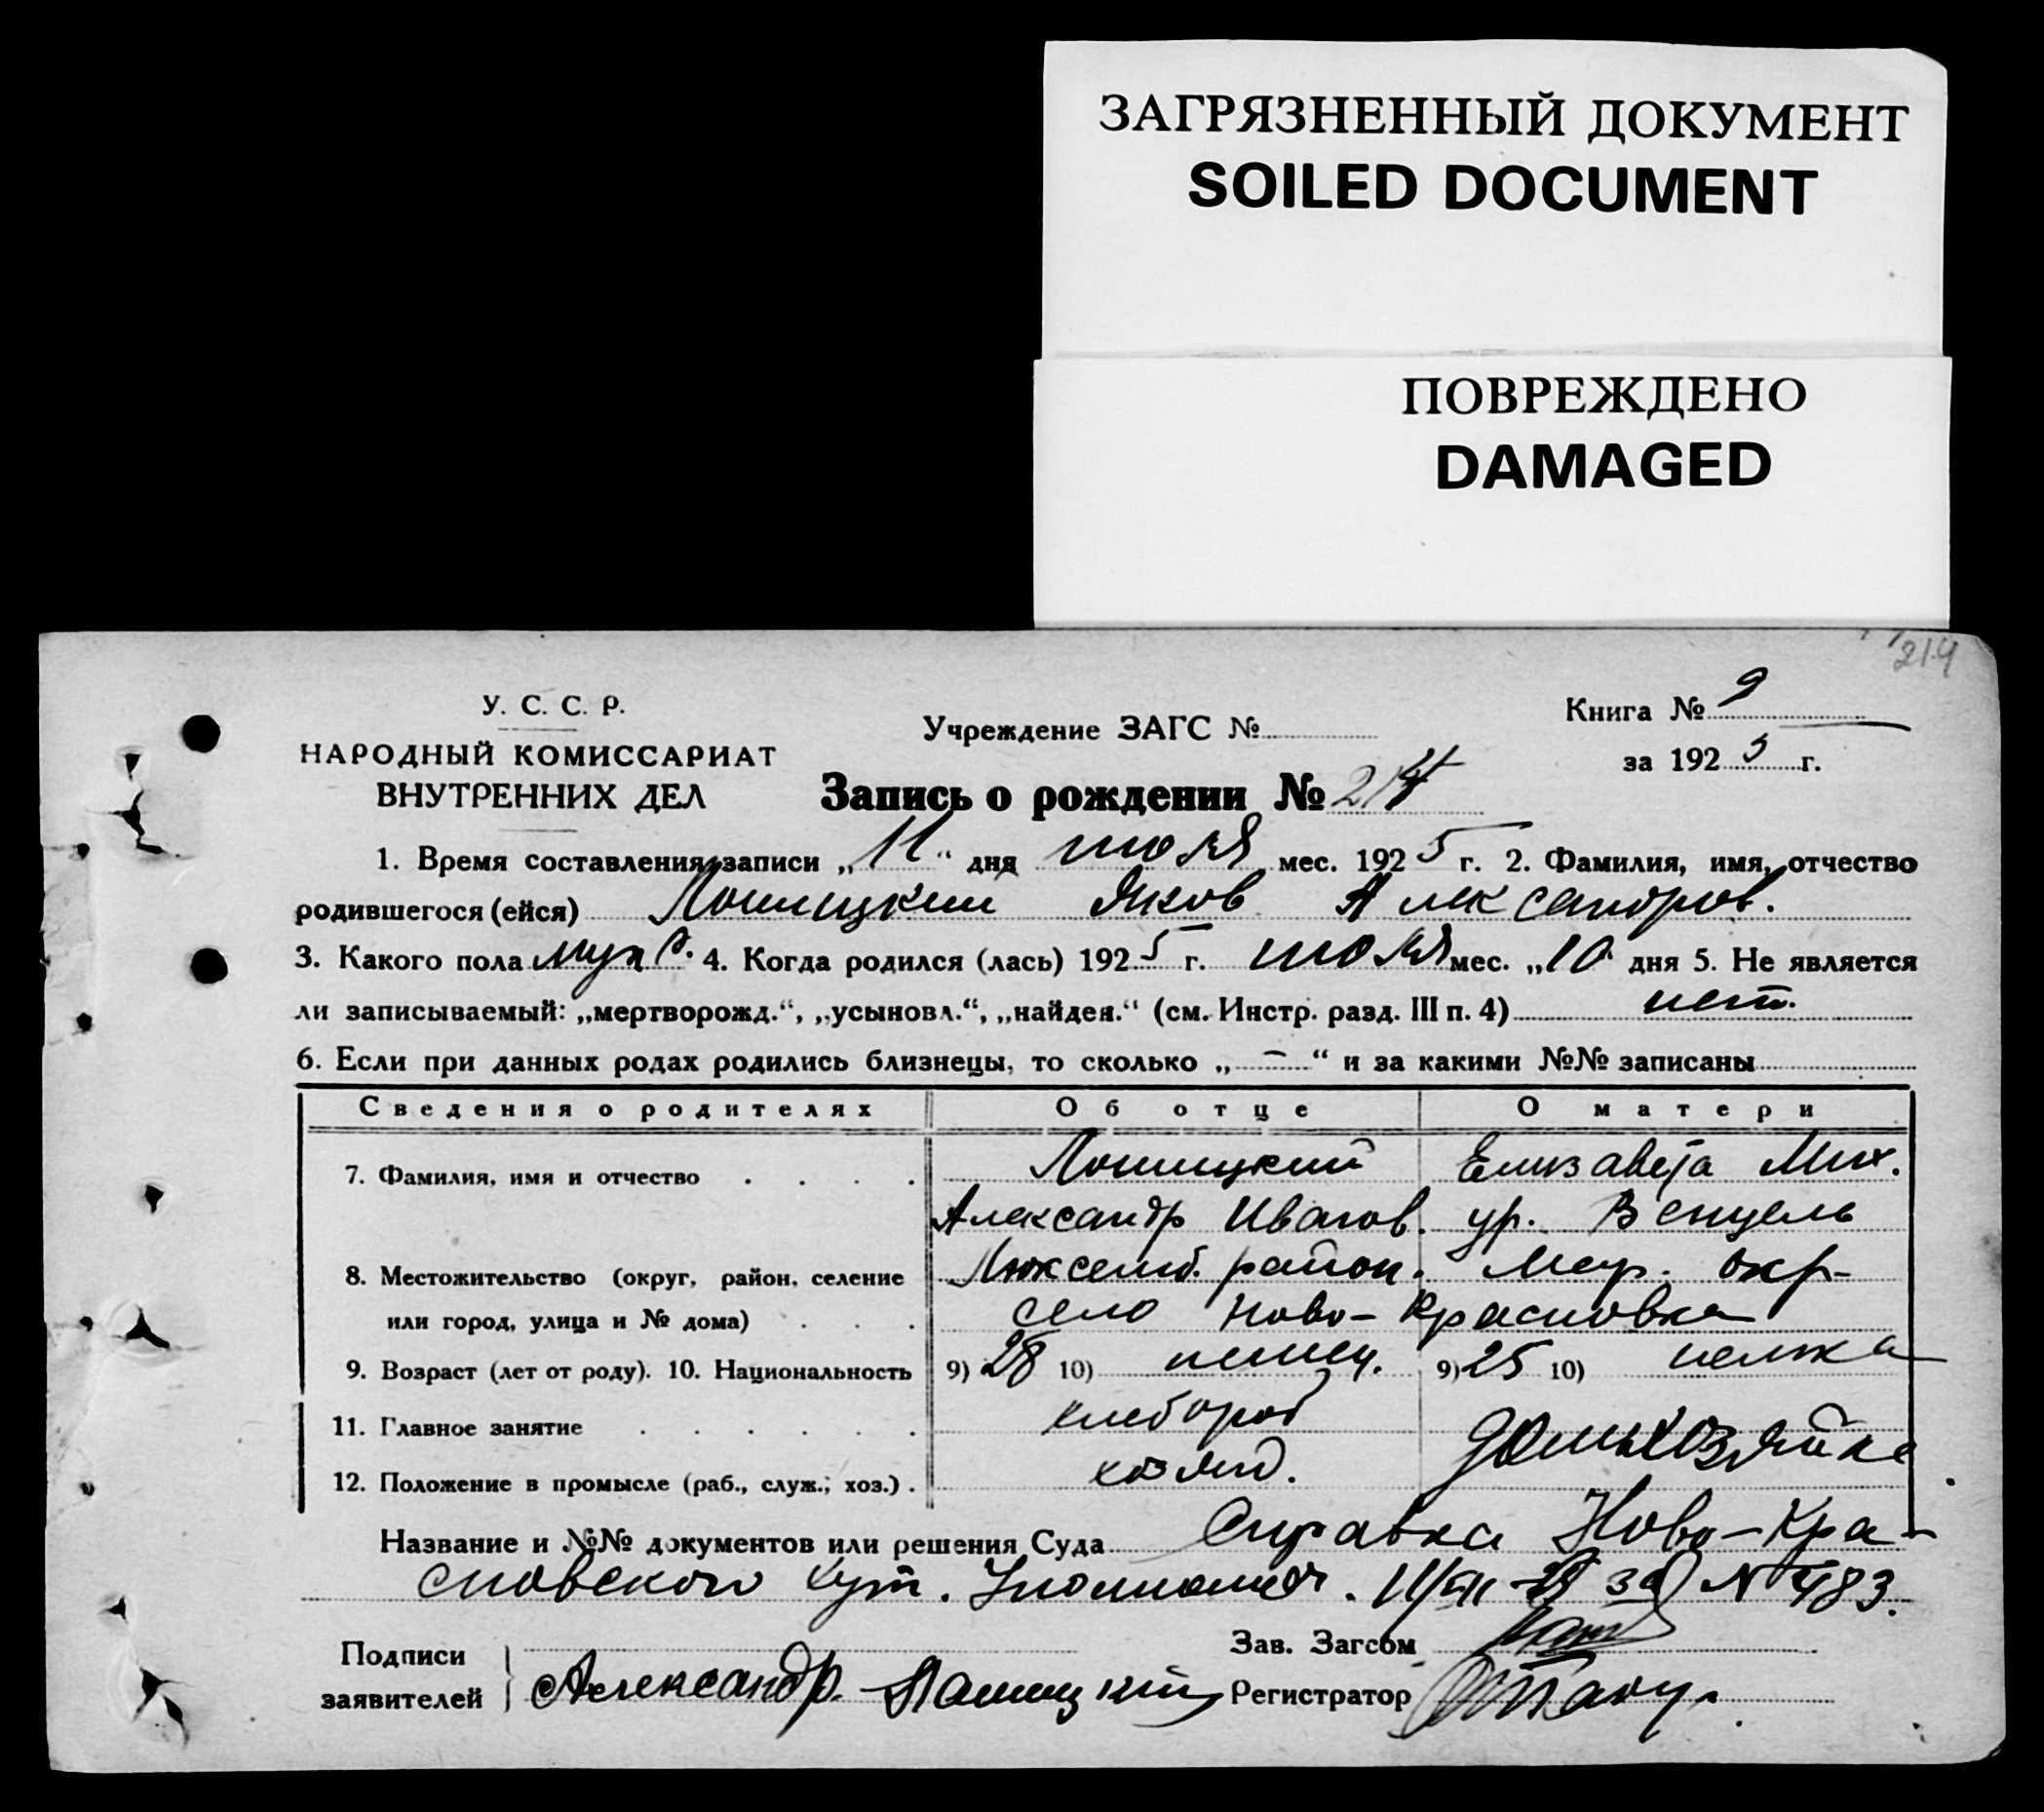 ЗАГРЯЗНЕННЫЙ ДОКУМЕНТ
SOILED DOCUMENT
ПОВРЕЖДЕНО
DAMAGED
214
У. С. С. Р.
НАРОДНЫЙ КОМИССАРИАТ
ВНУТРЕННИХ ДЕЛ
Учреждение ЗАГС №
Книга № 9
за 1925 г.
Запись о рождении № 214
1. Время составления записи „11“ дня июля мес. 1925 г. 2. Фамилия, имя, отчество
родившегося (ейся) Лошицкий Яков Александров.
3. Какого пола муж. 4. Когда родился (лась) 1925 г. июля мес. „10 дня 5. Не является
ли записываемый: „мертворожд.“, „усыновл.“, „найден.“ (см. Инстр. разд. III п. 4) нет.
6. Если при данных родах родились близнецы, то сколько „ — “ и за какими №№ записаны
Сведения о родителях Об отце О матери
7. Фамилия, имя и отчество Лошицкий Елизавета Мих.
Александр Иванов. ур. Венцель
8. Местожительство (округ, район, селение Люксемб. район. Мар. окр-
или город, улица и № дома) село Ново-Красновка
9. Возраст (лет от роду). 10. Национальность 9) 28 10) немец. 9) 25 10) немка
11. Главное занятие хлебороб домохозяйка
12. Положение в промысле (раб., служ.; хоз.) хозяин.
Название и №№ документов или решения Суда Справка Ново-Кра-
сновского Уполномоч. за № 483.
Подписи
заявителей Александр. Лашицкий
Зав. Загсом
Регистратор